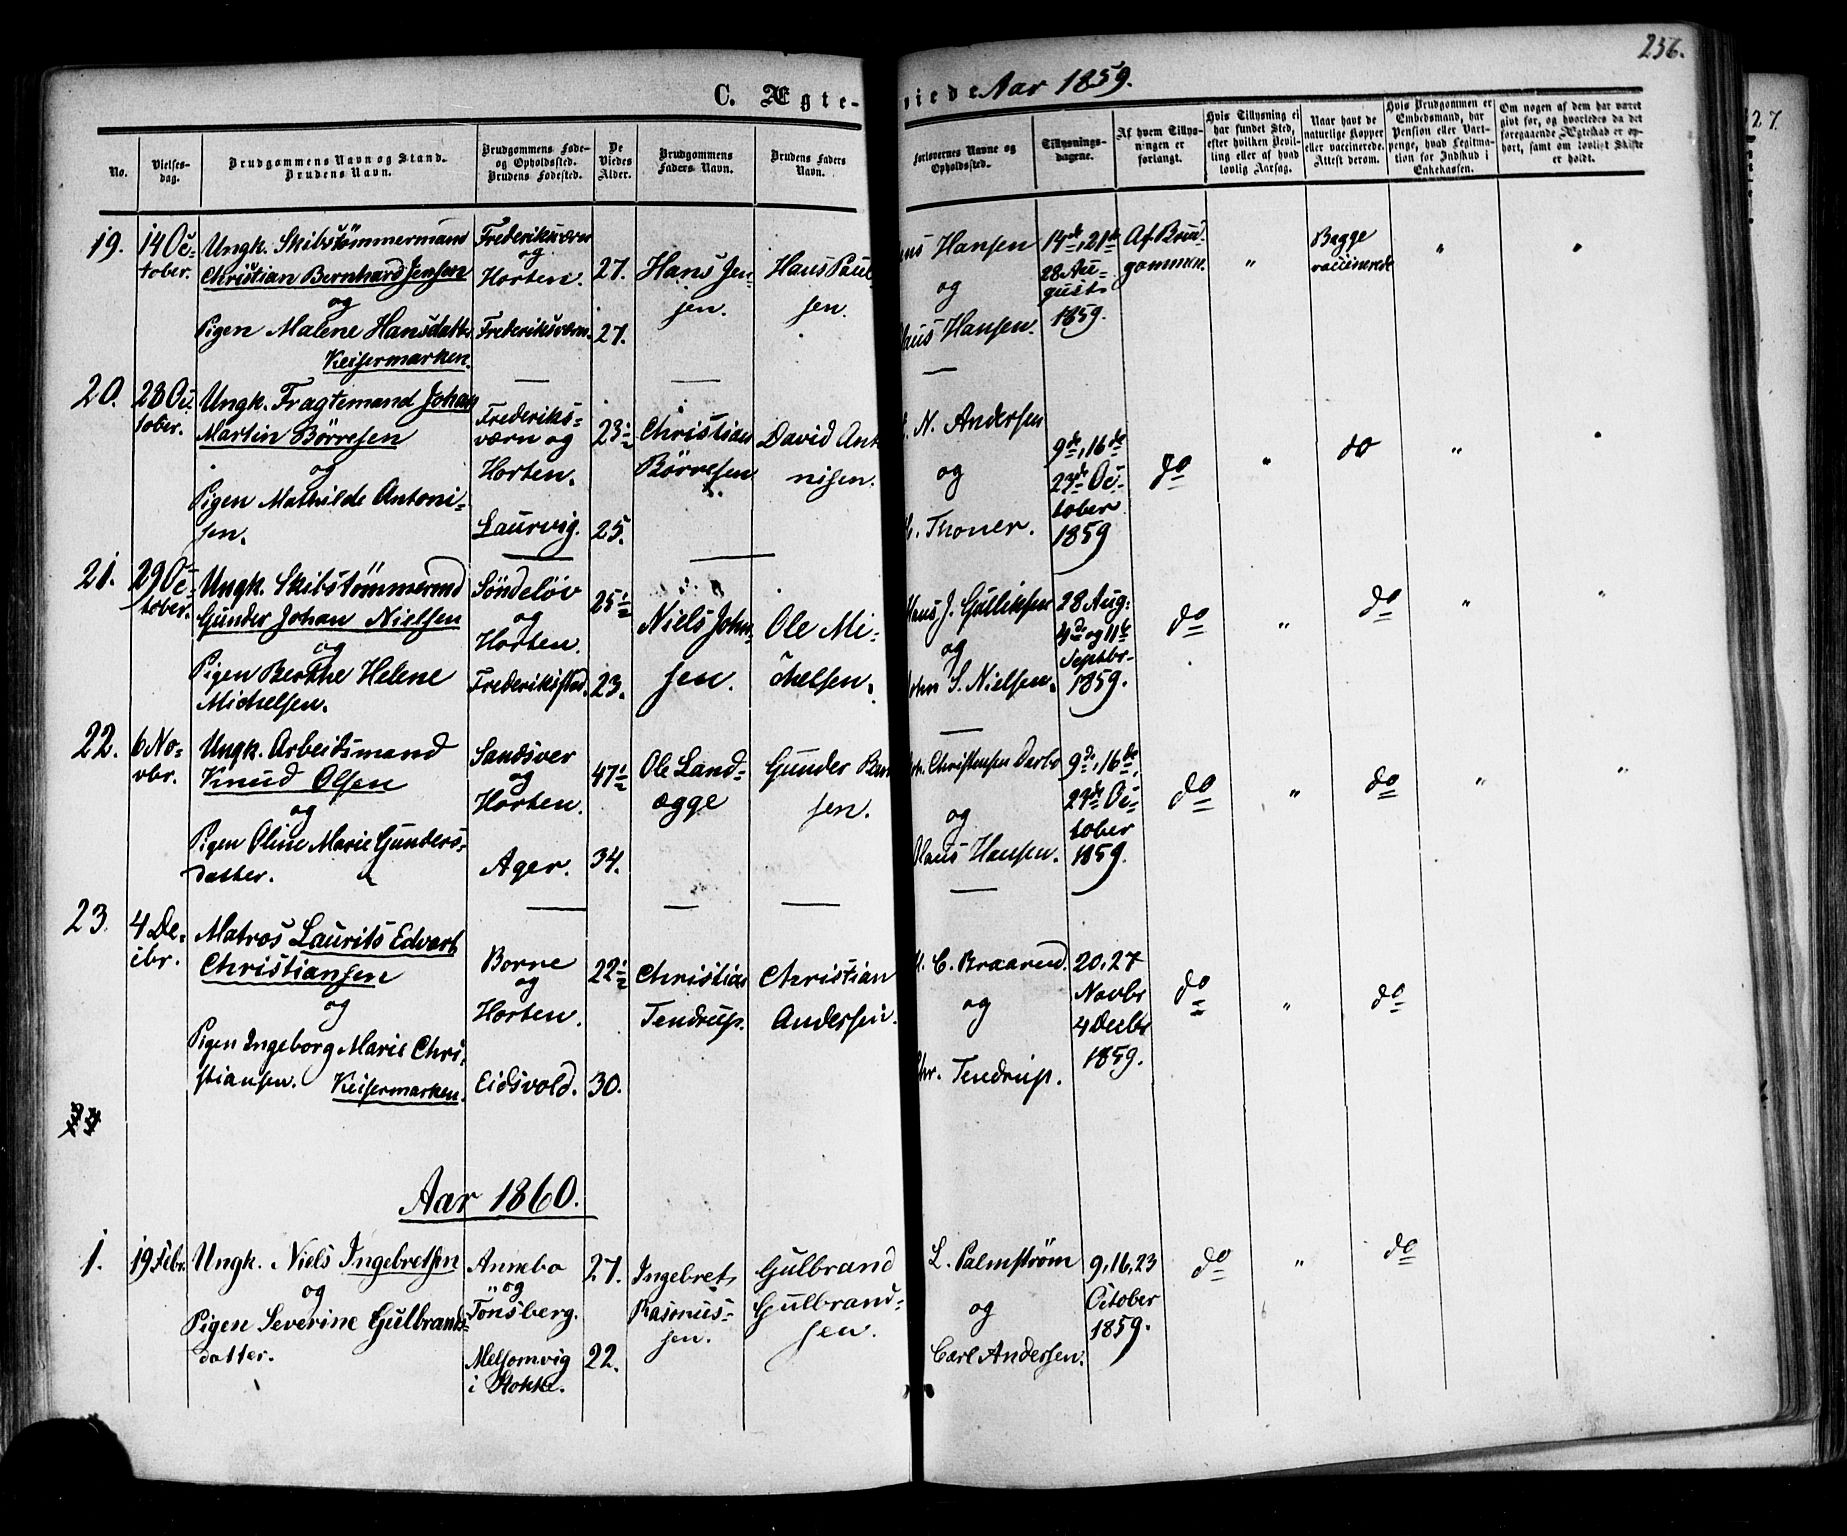 256.
C. Ægte-
viede Aar 1859.
No.
Vielses-
dag.
Brudgommens Navn og Stand.
Brudens Navn.
Brudgommens Føde-
og Opholdssted.
Brudens Fødested.
De
Viedes
Alder.
Brudgommens
Faders Navn.
Brudens Faders
Navn.
Forlovernes Navne og
Opholdssted.
Tillysnings-
dagene.
Af hvem Tillys-
ningen er
forlangt.
Hvis Tillysning ei
har fundet Sted,
efter hvilken Bevil-
ling eller af hvad
lovlig Aarsag.
Naar havt de
naturlige Kopper
eller vaccinerede.
Attest derom.
Hvis Brudgommen er
Embedsmand, har
Pension eller Vart-
penge, hvad Legitima-
tion for Indskud i
Enkekassen.
Om nogen af dem har været
givt før, og hvorledes da det
foregaaende Ægteskab er op-
hørt, samt om lovligt Skifte
er holdt.
127.
19.
14 Oc-
tober.
Ungk. Skibstømmermand
Christian Bernhard Jensen
og
Pigen Malene Hansdatter
Keisermarken.
Frederiksværn
og
Horten.
Frederiksværn.
27.
27.
Hans Jen-
sen.
Hans Paul-
sen.
Hansen
og
Hansen.
14de, 21de
28 Au-
gust
1859.
Af Brud-
gommen.
"
Begge
vaccinerede
"
"
20.
28 Oc-
tober.
Ungk. Fragtemand Johan
Martin Börresen
og
Pigen Mathilde Antoni-
sen.
Frederiks-
værn og
Horten.
Laurvig.
23½
25.
Christian
Börresen
David Ant
nisen.
N. Andersen
og
Troner.
9de, 16de
23de Oc-
tober
1859
do
"
do
"
"
21.
29 Oc-
tober.
Ungk. Skibstømmermd
Gunder Johan Nielsen
og
Pigen Berthe Helene
Michelsen.
Söndelöv
og
Horten.
Frederikstad.
25½
23.
Niels John-
sen.
Ole Mi-
chelsen.
Hans J. Gulliksen
og
John S. Nielsen.
28 Aug:
4de og 11te
Septbr.
1859.
do
"
do
"
"
22.
6 No-
vbr.
Ungk. Arbeidsmand
Knud Olsen
og
Pigen Oline Marie Gunders-
datter.
Sandsver
og
Horten.
Ager.
47½
34.
Ole Land-
ægge
Gunder
sen.
Christensen Darbo
og
Olaus Hansen.
9de, 16de,
23de Oc-
tober
1859.
do
"
do
"
"
23.
4 De-
cbr.
Matros Laurits Edvart
Christiansen
og
Pigen Ingeborg Marie Chri-
stiansen. Keisermarken.
Borre
og
Horten.
Eidsvold.
22½
30.
Christian
Tendrup.
Christian
Andersen.
C. Braarud.
og
Chr. Tendrup.
20, 27
Novbr
4 Decbr
1859.
do
"
do
Aar 1860.
1.
19 Febr.
Ungk. Niels Ingebretsen
og
Pigen Severine Gulbrands-
datter.
Annebo
og
Tönsberg.
Melsomvig
i Stokke.
27.
22.
Ingebret
Rasmus-
sen.
Gulbrand
Gulbrand-
sen.
L. Palmstrøm
og
Carl Andersen.
9, 16, 23
October
1859.
do
"
do